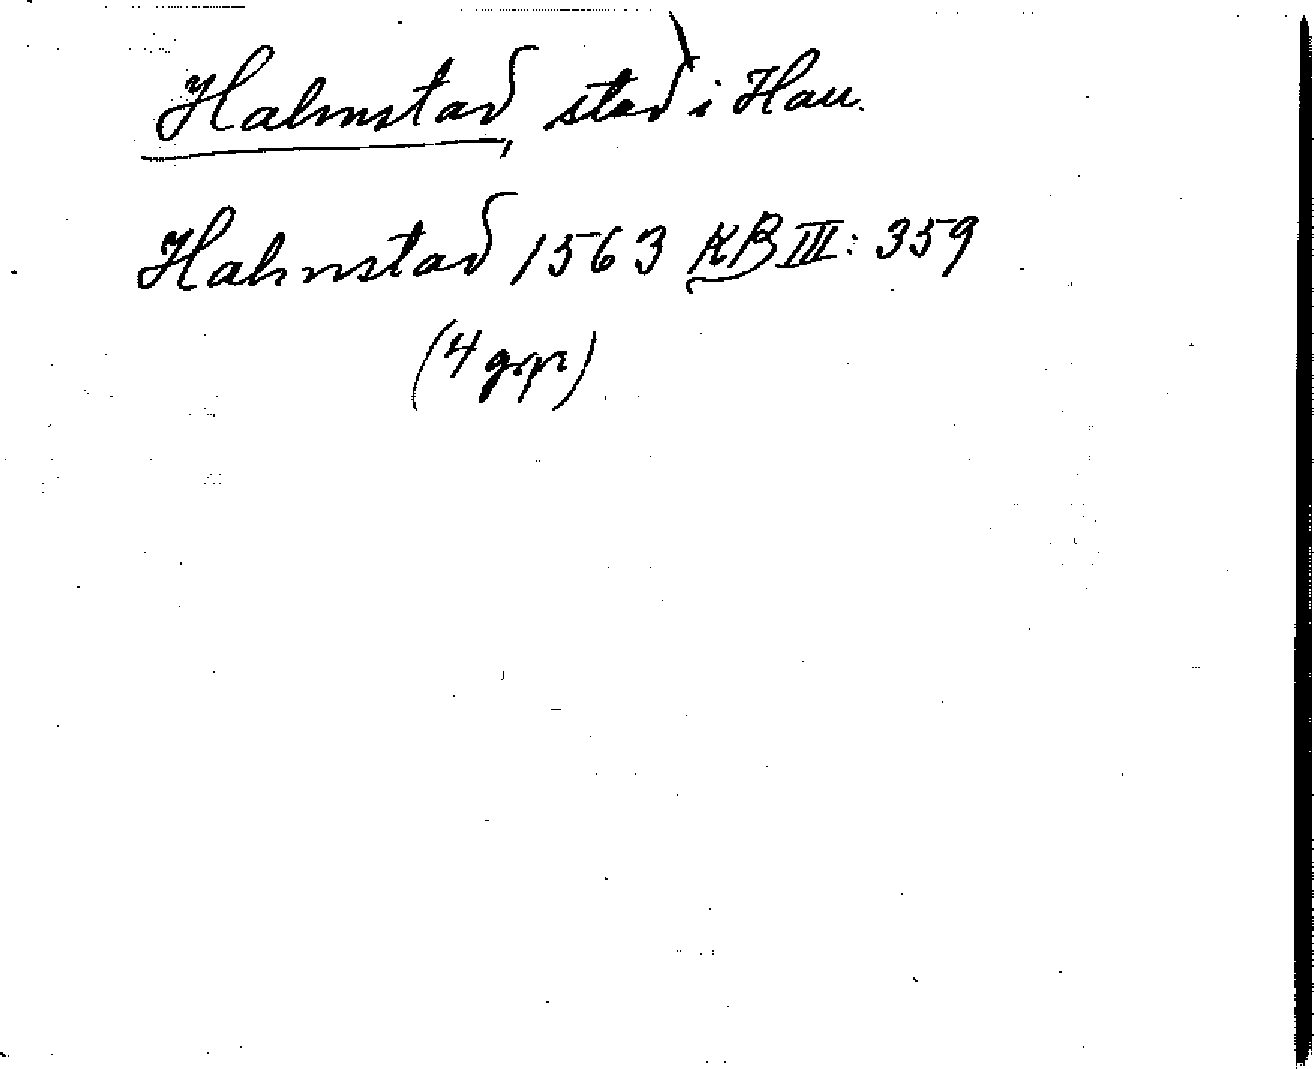 Halmstad, stad i Hall.
Halmstad 1563 KB III: 359
(4 ggr)